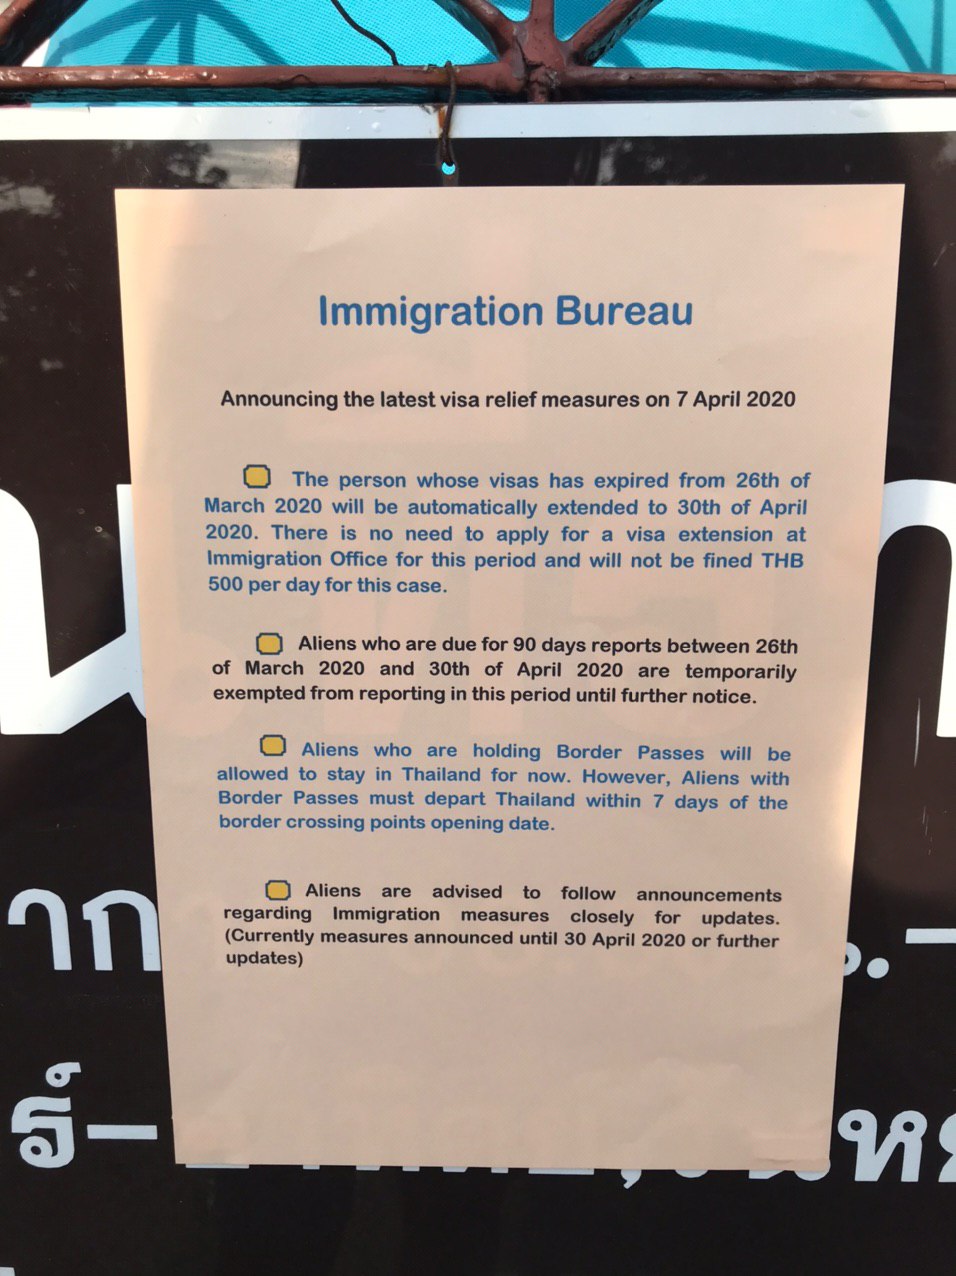 Immigration Bureau
Announcing the latest visa relief measures on 7 April 2020
The person whose visas has expired from 26th of
March 2020 will be automatically extended to 30th of April
2020. There is no need to apply for a visa extension at
Immigration Office for this period and will not be fined THB
500 per day for this case.
Aliens who are due for 90 days reports between 26th
of March 2020 and 30th of April 2020 are temporarily
exempted from reporting in this period until further notice.
Aliens who are holding Border Passes will be
allowed to stay in Thailand for now. However, Aliens with
Border Passes must depart Thailand within 7 days of the
border crossing points opening date.
Aliens are advised to follow announcements
regarding Immigration measures closely for updates.
(Currently measures announced until 30 April 2020 or further
updates)